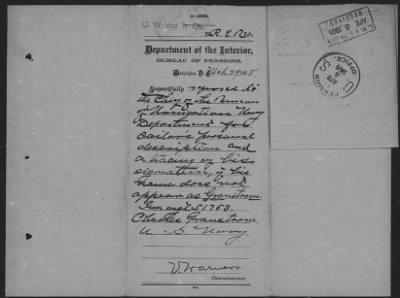 Department of the Interior,
BUREAU OF PENSIONS,
Washington, D.C.
Respectfully referred to
the Chief of the Bureau
of Navigation Navy
Department for
sailor's personal
description and
a tracing of his
signature, if his
name does not
appear as Granstrom
51753
Charles Granstrom
U. S. Navy
V. Warner
Commissioner.
APR 5 1905
RECEIVED
PENSION
OFFICE
U S
APR